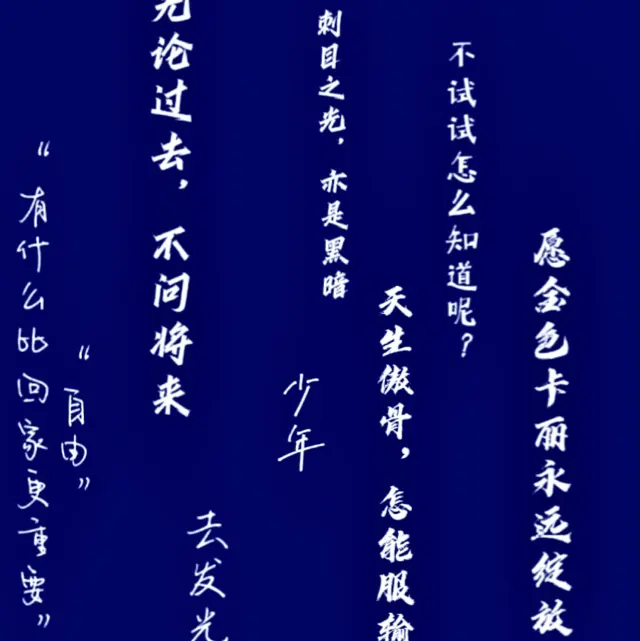 “有什么比回家更重要”
“自由”
无论过去，不问将来
去发光
少年
刺目之光，亦是黑暗
天生傲骨，怎能服输
不试试怎么知道呢？
愿金色卡丽永远绽放